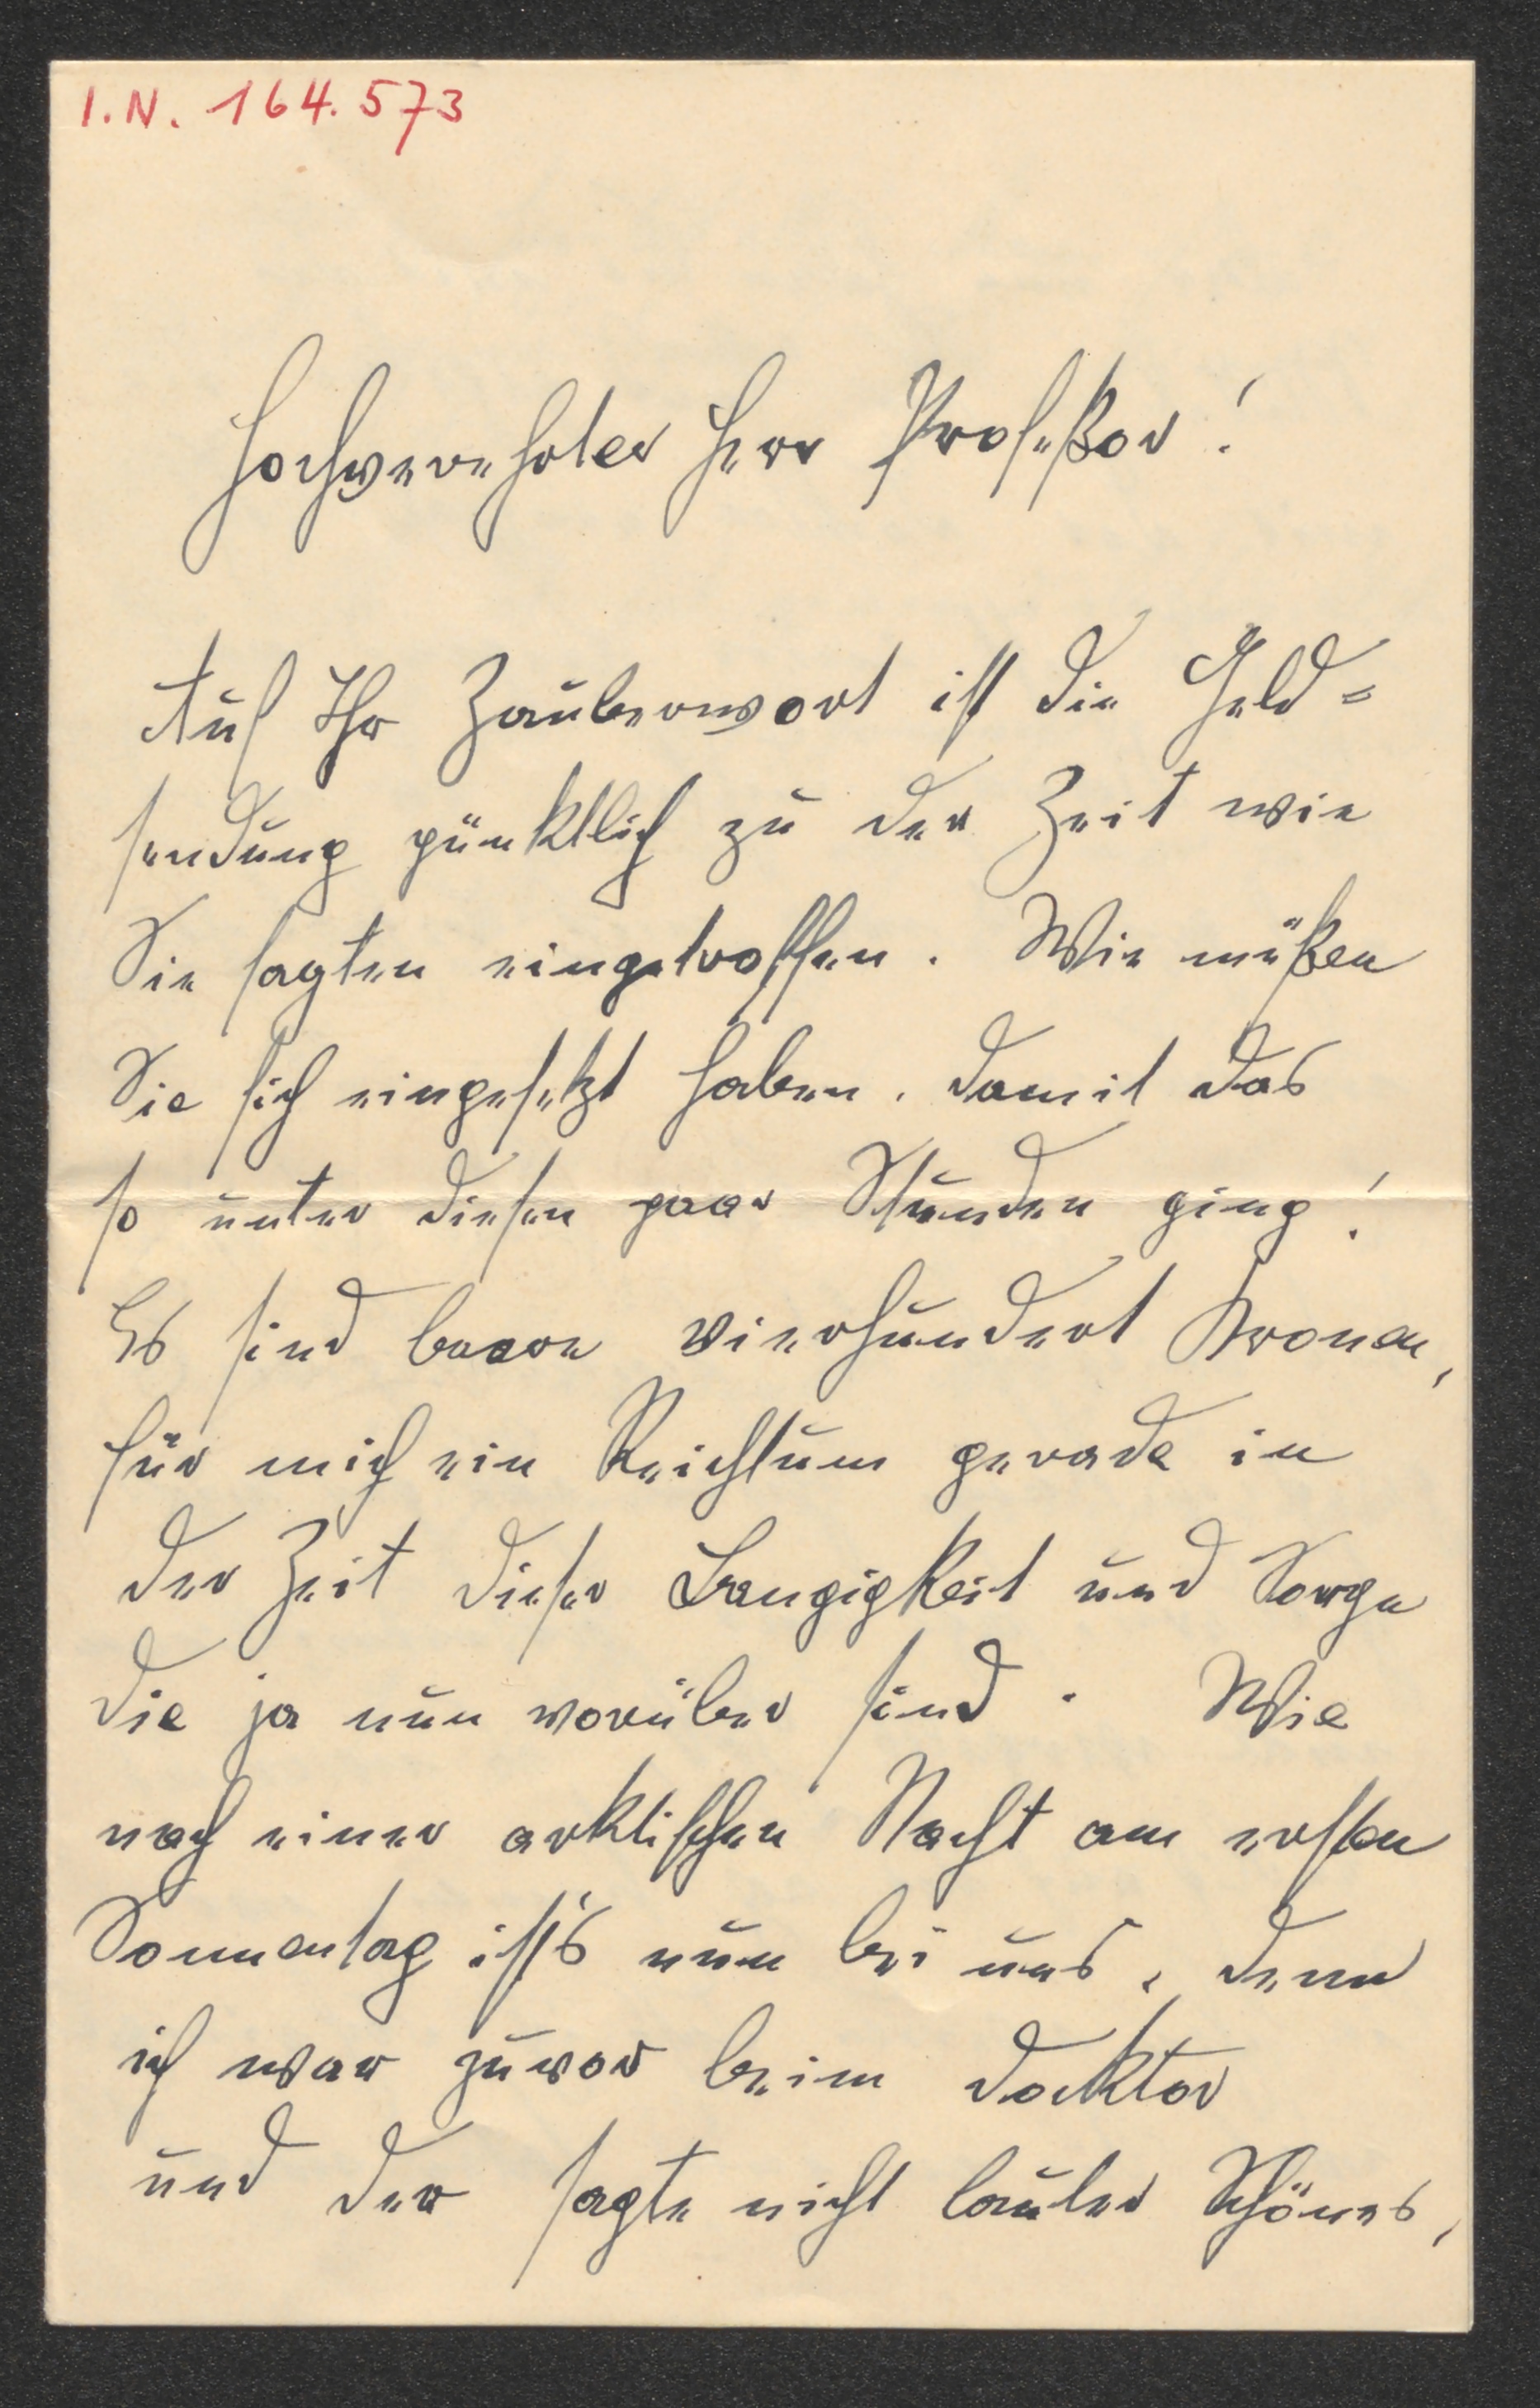 I.N. 164.573
Hochverehrter Herr Profeßor!
Auf Ihr Zauberwort ist die Geld=
sendung pünktlich zu der Zeit wie
Sie sagten eingetroffen. Wie müßen
Sie sich eingesetzt haben, damit das
so unter diesen paar Stunden ging!
Es sind baare vierhundert Kronen,
für mich ein Reichtum gerade in
der Zeit dieser Bangigkeit und Sorge
die ja nun vorüber sind. Wie
nach einer arktischen Nacht am ersten
Sonnentag ist's nun bei uns, denn
ich war zuvor beim Doktor
und der sagte nicht lauter Schönes,